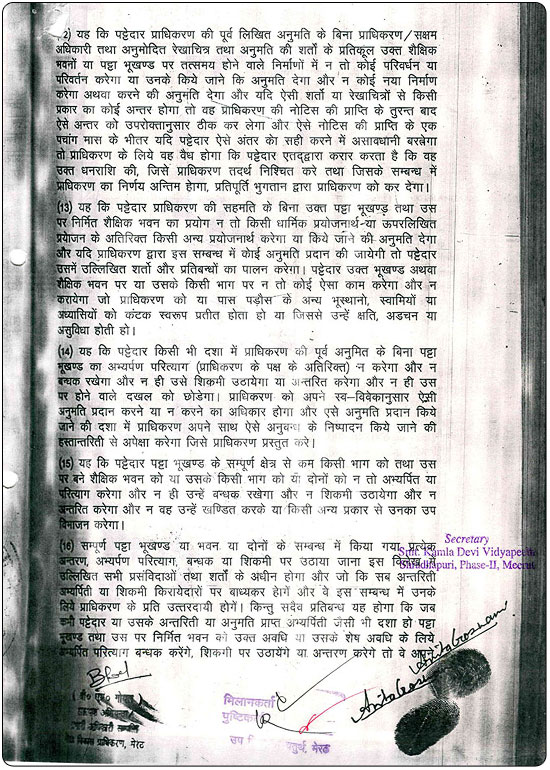 2) यह कि पट्टेदार प्राधिकरण की पूर्व लिखित अनुमति के बिना प्राधिकरण/सक्षम
अधिकारी तथा अनुमोदित रेखाचित्र तथा अनुमति की शर्तो के प्रतिकूल उक्त शैक्षिक
भवनों या पट्टा भूखण्ड पर तत्समय होने वाले निर्माणों में न तो कोई परिवर्धन या
परिवर्तन करेगा या उनके किये जाने कि अनुमति देगा और न कोई नया निर्माण
करेगा अथवा करने की अनुमति देगा और यदि ऐसी शर्तो या रेखाचित्रों से किसी
प्रकार का कोई अन्तर होगा तो वह प्राधिकरण की नोटिस की प्राप्ति के तुरन्त बाद
ऐसे अन्तर को उपरोक्तानुसार ठीक कर लेगा और ऐसे नोटिस की प्राप्ति के एक
पचांग मास के भीतर यदि पट्टेदार ऐसे अंतर केा सही करने में असावधानी बरतेगा
तो प्राधिकरण के लिये वह वैध होगा कि पट्टेदार एतद्द्वारा करार करता है कि वह
उक्त धनराशि की, जिसे प्राधिकरण तदर्थ निश्चित करे तथा जिसके सम्बन्ध में
प्राधिकरण का निर्णय अन्तिम हेागा, प्रतिपूर्ति भुगतान द्वारा प्राधिकरण को कर देगा।
(13) यह कि पट्टेदार प्राधिकरण की सहमति के बिना उक्त पट्टा भूखण्ड़ तथा उस
पर निर्मित शैक्षिक भवन का प्रयोग न तो किसी धार्मिक प्रयोजनार्थ या ऊपरलिखित
प्रयोजन के अतिरिक्त किसी अन्य प्रयोजनार्थ करेगा या किये जाने की अनुमति देगा
और यदि प्राधिकरण द्वारा इस सम्बन्ध में केाई अनुमति प्रदान की जायेगी तो पट्टेदार
उसमें उल्लिखित शर्तो और प्रतिबन्धों का पालन करेगा। पट्टेदार उक्त भूखण्ड अथवा
शैक्षिक भवन पर या उसके किसी भाग पर न तो कोई ऐसा काम करेगा और न
करायेगा जो प्राधिकरण को या पास पड़ौस के अन्य भूस्थानो, स्वामियों या
अध्यासियों को कंटक स्वरूप प्रतीत होता हो या जिससे उन्हें क्षति, अडचन या
असुविधा होती हो।
(14) यह कि पट्टेदार किसी भी दशा में प्राधिकरण की पूर्व अनुमित के बिना पट्टा
भूखण्ड का अभ्यर्पण परित्याग (प्राधिकरण के पक्ष के अतिरिक्त) न करेगा और न
बन्धक रखेगा और न ही उसे शिकमी उठायेगा या अन्तरित करेगा और न ही उस
पर होने वाले दखल को छोडेगा। प्राधिकरण को अपने स्व–विवेकानुसार ऐसी
अनुमति प्रदान करने या न करने का अधिकार होगा और एसे अनुमति प्रदान किये
जाने की दशा में प्राधिकरण अपने साथ ऐसे अनुबन्ध के निष्पादन किये जाने की
हस्तान्तरिती से अपेक्षा करेगा जिसे प्राधिकरण प्रस्तुत करे।
(15) यह कि पट्टेदार पट्टा भूखण्ड के सम्पूर्ण क्षेत्र से कम किसी भाग को तथा उस
पर बने शैक्षिक भवन को या उसके किसी भाग को या दोनों को न तो अभ्यर्पित या
परित्याग करेगा और न ही उन्हें बन्धक रखेगा और न शिकमी उठायेगा और न
अन्तरित करेगा और न वह उन्हें खण्डित करके या किसी अन्य प्रकार से उनका उप
विभाजन करेगा।
Secretary
Smt. Kamla Devi Vidyapeeth
Shradhapuri, Phase-II, Meerut
(16) सम्पूर्ण पट्टा भूखण्ड या भवन या दोनों के सम्बन्ध में किया गया प्रत्येक
अन्तरण, अभ्यर्पण परित्याग, बन्धक या शिकमी पर उठाया जाना इस विलेख में
उल्लिखित सभी प्रसंविदाओं तथा शर्तो के अधीन होगा और जो कि सब अन्तरिती
अभ्यर्पिती या शिकमी किरायेदारों पर बाध्यकर हेागें और वे इस सम्बन्ध में उनके
लिये प्राधिकरण के प्रति उत्तरदायी होगें। किन्तु सदैव प्रतिबन्ध यह होगा कि जब
कभी पट्टेदार या उसके अन्तरिती या अनुमति प्राप्त अभ्यर्पिती जैसी भी दशा हो पट्टा
भूखण्ड तथा उस पर निर्मित भवन को उक्त अवधि या उसके शेष अवधि के लिये
अभ्यर्पित परित्याग बन्धक करेंगे, शिकमी पर उठायेंगे या अन्तरण करेगे तो वे अपने
मिलानकर्ता
मेरठ
प्राधिकरण, मेरठ